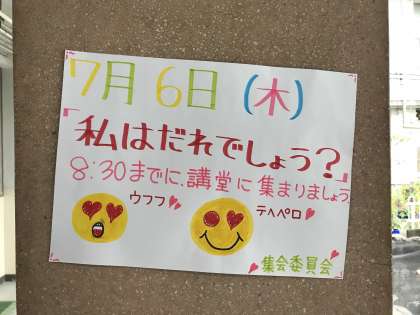 7月6日(木)
「私はだれでしょう？」
8:30までに、講堂に集まりましょう
ウフフ
テヘペロ
集会委員会